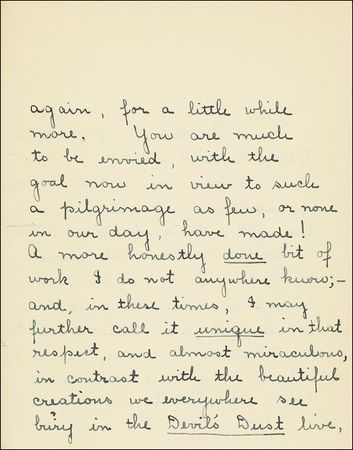 again, for a little while
more. You are much
to be envied, with the
goal now in view to such
a pilgrimage as few, or none
in our day, have made!
A more honestly done bit of
work I do not anywhere know;–
and, in these times, I may
further call it unique in that
respect, and almost miraculous,
in contrast with the beautiful
creations we everywhere see
bury in the Devil's Dust live,